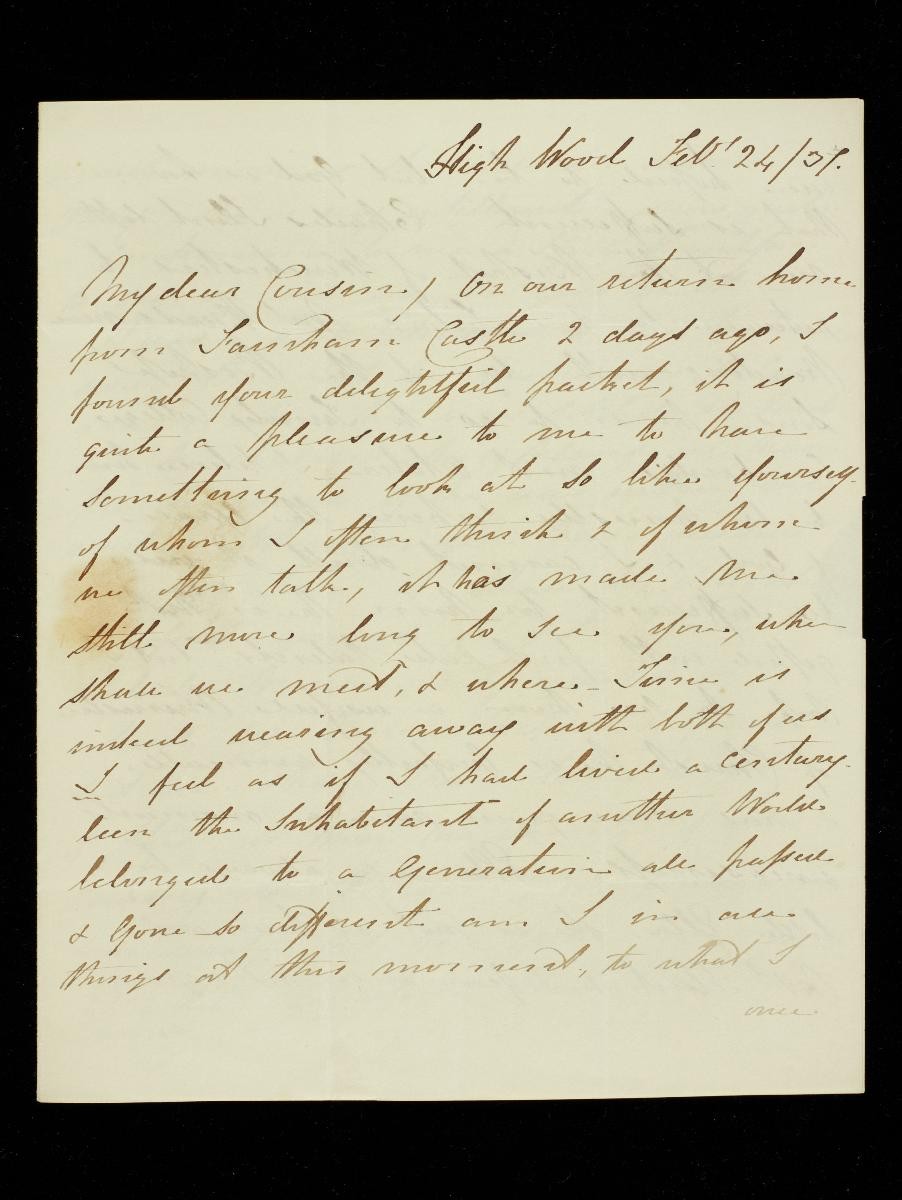 High Wood Feb: 24/37.
My dear Cousin / On our return home
from Farnham Castle 2 days ago, I
found your delightful packet, it is
quite a pleasure to me to have
something to look at so like yourself
of whom I often think & of whom
we often talk, it has made me
still more long to see you, when
shall we meet, & where - Time is
indeed wearing away with both of us
I feel as if I had lived a century -
been the Inhabitant of another World
belonged to a Generation all passed
& Gone so different am I in all
things at this moment, to what I
once